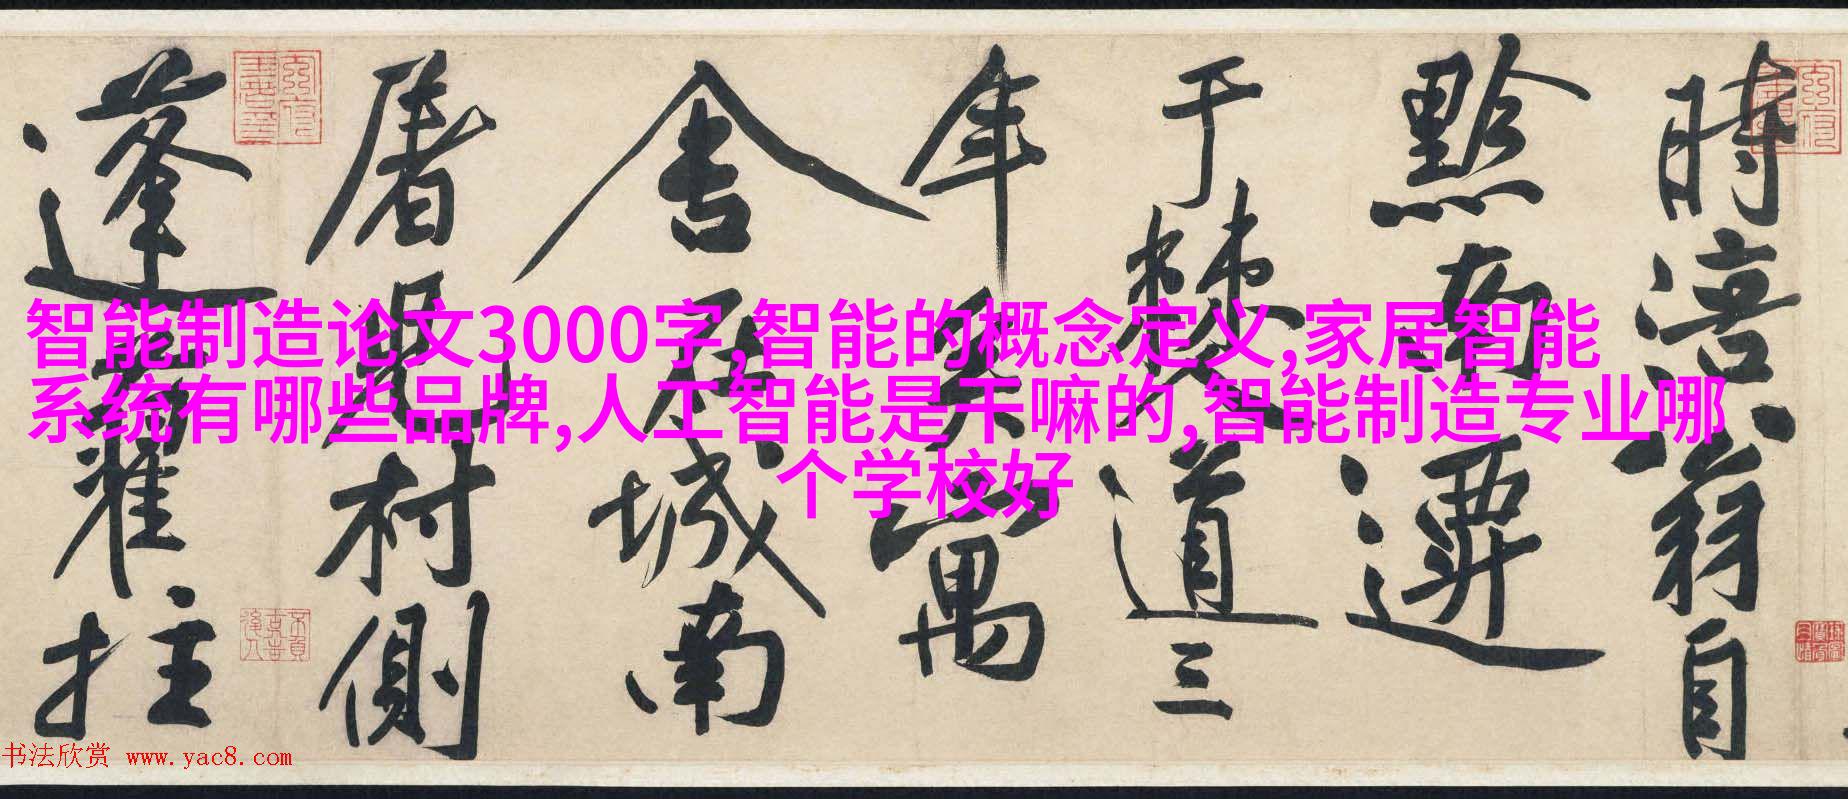 時涪翁自
黔南遷
于僰道三
年矣寓
舍在城南
屠兒村側
蓬藋拄
智能制造论文3000字,智能的概念定义,家居智能
系统有哪些品牌,人工智能是干嘛的,智能制造专业哪
个学校好
书法欣赏 www.yac8.com